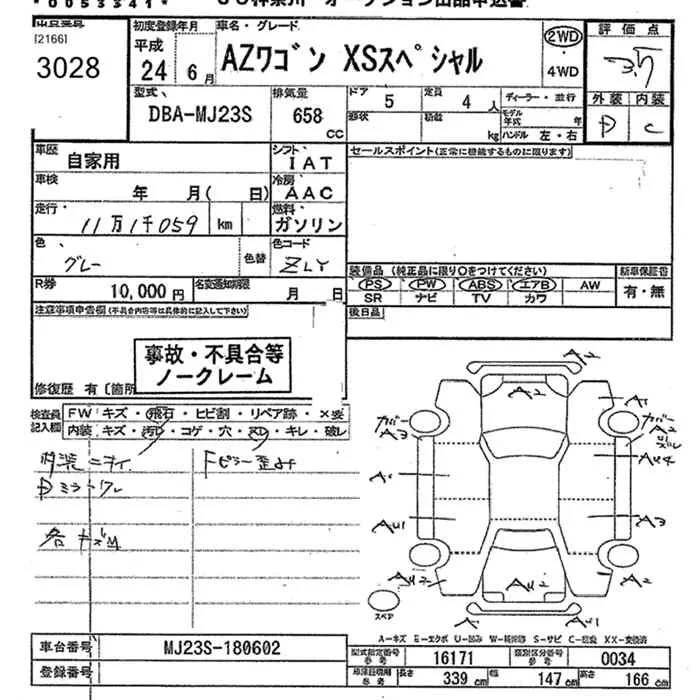 * 0 0 5 3 3 4 1 *
[2166]
3028
初度登録年月
平成
24 6月
車名・グレード
AZワゴン XSスペシャル
2WD
・
4WD
評価点
3.5
外装 内装
D C
型式
DBA-MJ23S
排気量
658
CC
ドア
5
定員
4 人
ディーラー・並行
形状
積載
kg
モデル年式 年
ハンドル 左・右
車歴
自家用
シフト
IAT
セールスポイント(正常に機能するものに限ります)
車検
年 月( 日)
冷房
AAC
走行
11万1千059 km
燃料
ガソリン
色
グレー
色替
色コード
ZLY
装備品 (純正品に限り○をつけてください)
新車保証書
PS PW ABS エアB AW
SR ナビ TV カワ
有・無
R券
10,000 円
名変通知期限
月 日
後日品
注意事項申告欄(不具合内容等は具体的に記入して下さい)
事故・不具合等
ノークレーム
修復歴 有 〔箇所
検査員
記入欄
FW キズ・飛石・ヒビ割・リペア跡・×要
内装 キズ・汚れ・コゲ・穴・ヌレ・キレ・破レ
内装ニオイ
Fピラー歪み
Dミラーワレ
各キズM
A2
A2
A1
カバー
A3
カバー
A2
U1
ズレ
AU4
A1
AU1
A3
AU2
AU2
A2
スペア
A
AU1
A-キズ E-エクボ U-凹み W-補修跡 S-サビ C-腐食 XX-交換済
車台番号
MJ23S-180602
登録番号
型式指定番号
参考
16171
類別区分番号
参考
0034
参考
長さ 339 cm 幅 147 cm 高さ 166 cm